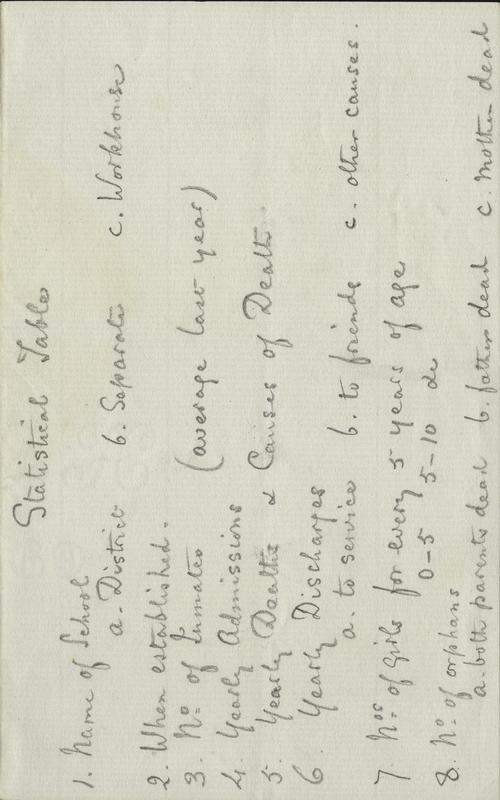 Statistical Table
1. Name of School
a. District b. Separate c. Workhouse
2. When established.
3. No. of Inmates (average last year)
4. Yearly Admissions
5. Yearly Deaths & Causes of Death.
6. Yearly Discharges
a. to service b. to friends c. other causes.
7 Nos. of girls for every 5 years of age
0-5 5-10 &c
8. No. of orphans
a. both parents dead b. father dead c. mother dead